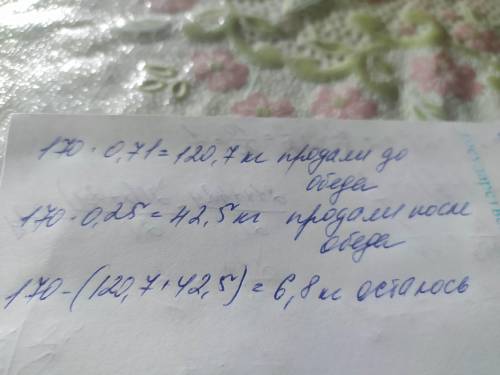 170 · 0,71 = 120,7 кг продали до
обеда
170 · 0,25 = 42,5 кг продали после
обеда
170 - (120,7 + 42,5) = 6,8 кг осталось